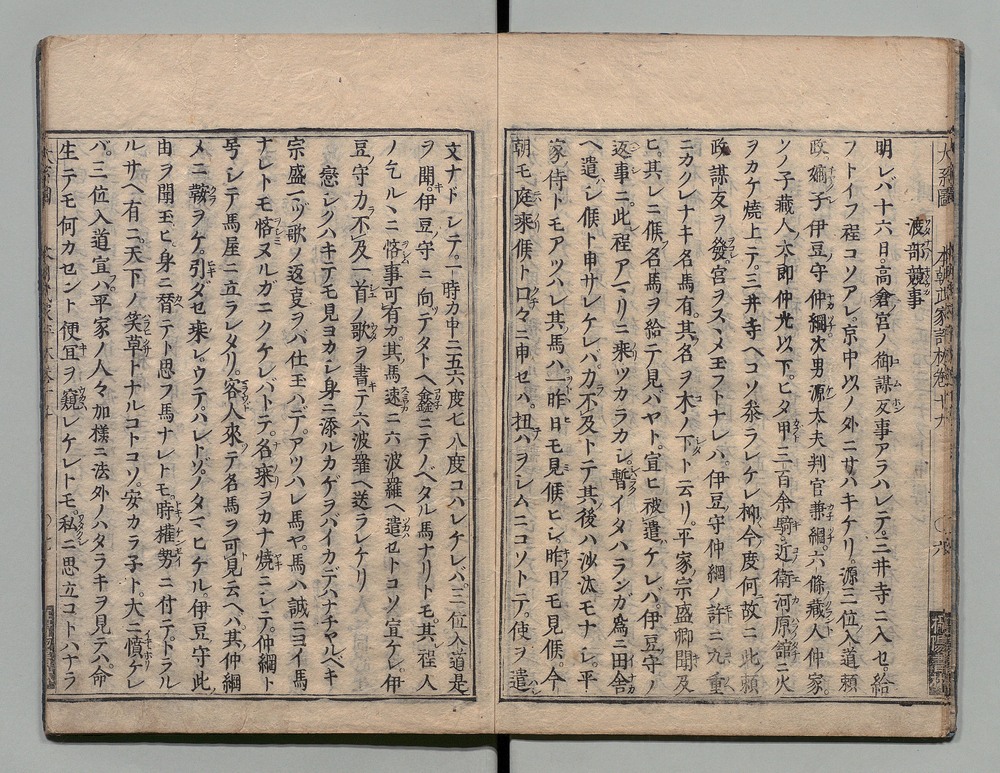 渡部競事
明レバ十六日。高倉宮ノ御謀反事アラハレテ。三井寺ニ入セ。給
フトイフ程コソアレ。京中以ノ外ニサハキケリ。源三位入道頼
政嫡子伊豆守仲綱次男源太夫判官兼綱六條藏人仲家。
ソノ子藏人太郎仲光以下。ヒタ甲三百余騎近衛河原
ヲカケ焼上テ。三井寺ヘコソ参ラレケレ抑今度何故ニ此頼
政謀反ヲ發宮ヲスヽメ玉フトナレハ。伊豆守仲綱ノ許ニ九重
ニカクレナキ名馬有。其名ヲ木ノ下ト云リ。平家宗盛卿聞及
ヒ。其レニ候名馬ヲ給テ見バヤト。宣ヒ被遣ケレバ。伊豆守ノ
返事ニ。此程アマリニ乗ツカラカシ。暫イタハランガ爲ニ田舎
ヘ遣ハシ候ト申サレケレバ。力不及トテ其後ハ沙汰モナシ。平
家侍トモアツハレ其馬ハ一昨日モ見候ヒシ。昨日モ見候。今
朝モ庭乘候ト口々ニ申セハ。扨ハヲシムニコソトテ。使ヲ遣
文ナドシテ。一時カ中ニ五六度七八度コハレケレバ。三位入道是
ヲ聞。伊豆守ニ向テタトヘ金ニテノベタル馬ナリトモ。其程人
ノ乞ルヽニ悋事可有カ。其馬速ニ六波羅ヘ遣セトコソ宣ケレ。伊
豆守力不及一首ノ歌ヲ書テ六波羅ヘ送ラレケリ
戀シクハキテモ見ヨカシ身ニ添ルカゲヲバイカデハナチヤルベキ
宗盛ニツ歌ノ返変ヲバ仕玉ハデ。アツハレ馬ヤ。馬ハ誠ニヨイ馬
ナレトモ悋ヌルガニクケレバトテ。名乗ヲカナ焼ニシテ。仲綱ト
号シテ馬屋ニ立ラレタリ。客人來テ名馬ヲ可見云ヘハ。其仲綱
メニ鞍ヲケ。引ダセ乗レ。ウテ。ハレトゾノタマヒケル。伊豆守此
由ヲ聞玉ヒ。身ニ替テト思フ馬ナレトモ。時權勢ニ付テ。トラル
ルサヘ有ニ。天下ノ笑草トナルコトコソ。安カラ子ト。大ニ憤ケレ
バ。三位入道宣ハ。平家ノ人々加様ニ法外ノハタラキヲ見テハ。命
生テモ何カセント便宜ヲ窺レケレトモ。私ニ思立コトハナラ